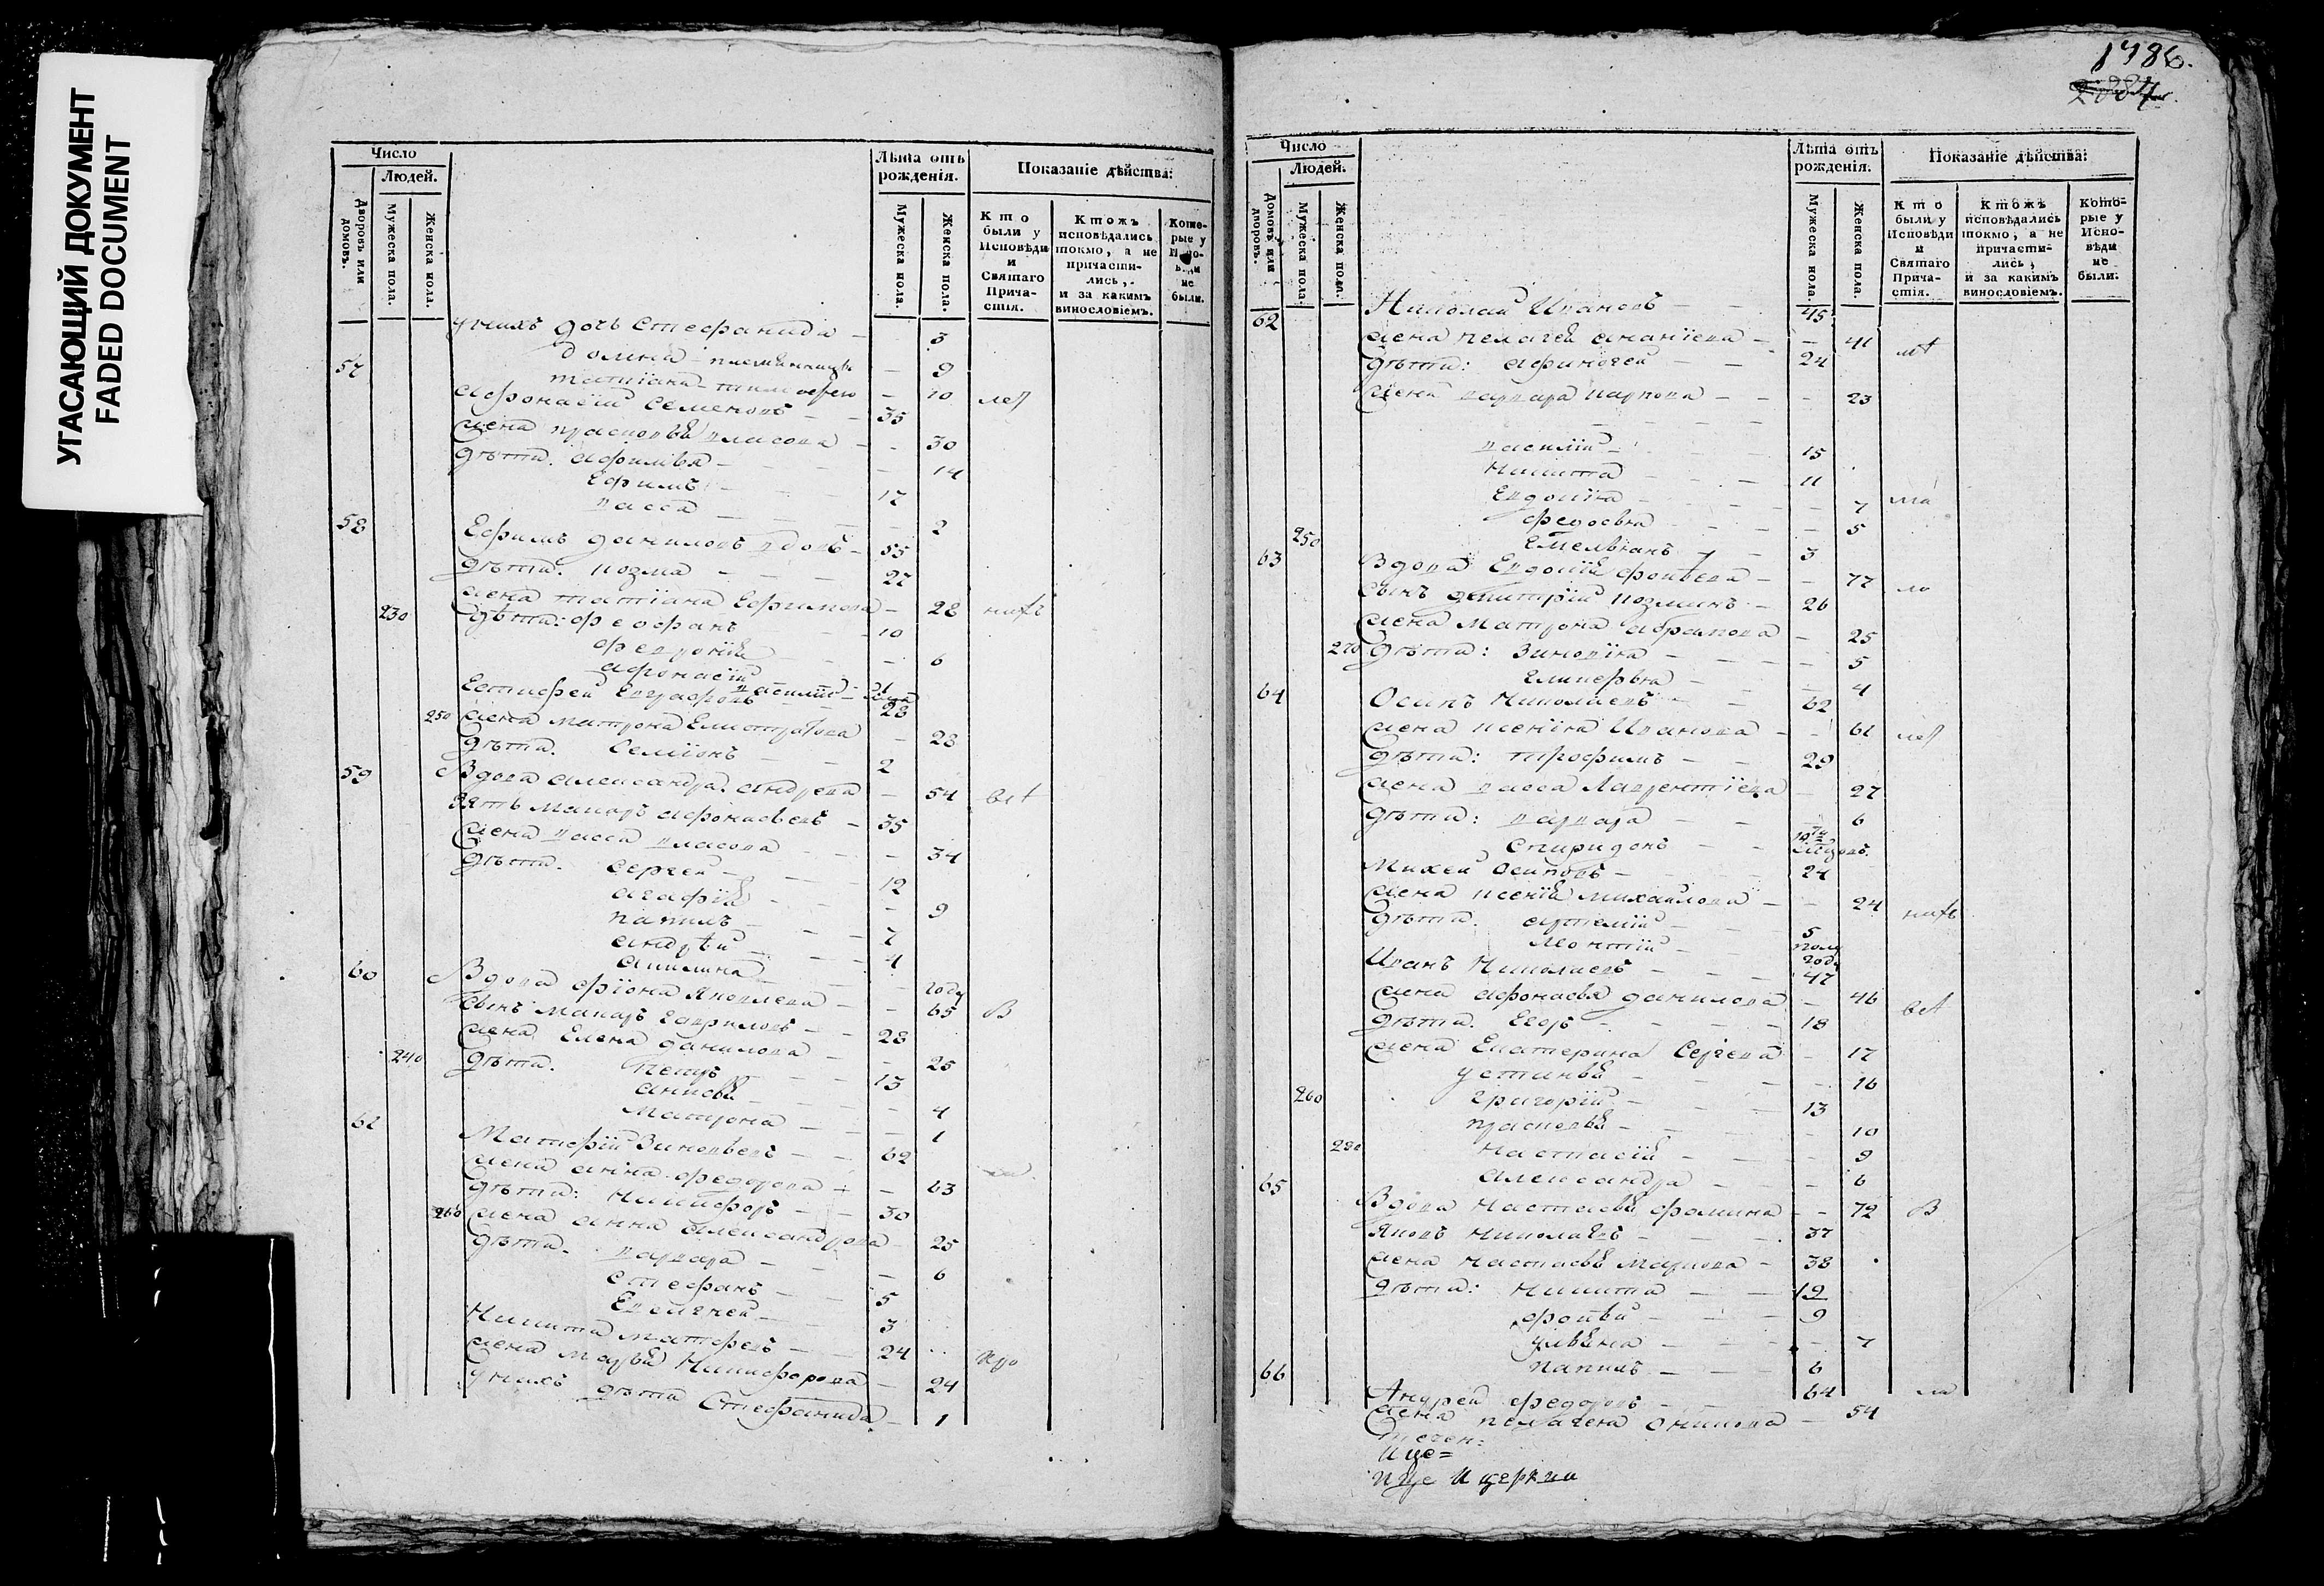 УГАСАЮЩИЙ ДОКУМЕНТ
FADED DOCUMENT
Число
Людей.
Дворовъ или домовъ.
Мужеска пола.
Женска пола.
Лѣта отъ рожденія.
Мужеска пола.
Женска пола.
Показаніе дѣйства:
Кто были у Исповѣди и Святаго Причастія.
Ктожъ исповѣдались токмо, а не причастились, и за какимъ винословіемъ.
Которые у Исповѣди не были.
у нихъ дочь Стефанида 3
Домна племянница 9
57 Татіана 10
Афонасій Семеновъ 35
жена Прасковья Власова 30
дѣти. Афимья 14
Ефимъ 17
Васса 2
58 Ефимъ Даниловъ вдовъ 55
дѣти. Козма 27
жена Татіана Ефимова 28
230 дѣти: Феофанъ 10
Февронія 6
Афонасій
Евстифей Евграфовъ 28
250 жена Матрона Елистратова 28
дѣти. Семіонъ 2
59 Вдова Александра Андреева 54
зять Макаръ Афонасьевъ 35
жена Васса Власова 34
дѣти. Сергей 12
Агафія 9
Вавилъ 7
Андрѣй 4
Акилина году
60 Вдова Фіона Яковлева 65
сынъ Макаръ Гавриловъ 28
жена Елена Данилова 25
240 дѣти. 13
Анисья 4
Матрона 1
61 Матфій Зиновьевъ 62
жена Анна Федорова 63
дѣти: Никифоръ 30
260 жена Анна Александрова 25
дѣти. Варвара 6
Стефанъ 5
Евсигней 3
Никита Матфеевъ 24
жена Марья Никифорова 24
у нихъ дѣти Стефанида 1
1786.
2884.
Число
Людей.
Домовъ или дворовъ.
Мужеска пола.
Женска пола.
Лѣта отъ рожденія.
Мужеска пола.
Женска пола.
Показаніе дѣйства:
Кто были у Исповѣди и Святаго Причастія.
Ктожъ исповѣдались токмо, а не причастились, и за какимъ винословіемъ.
Которые у Исповѣди не были.
62 Николай Ивановъ 45
жена Пелагея Ананіева 41
дѣти: Афиногей 24
жена Варвара Карпова 23
Василій 15
Никита 11
Евдокія 7
Федосья 5
250 Емельянъ 3
63 Вдова Евдокія Фокѣева 77
сынъ Димитрій Козминъ 26
жена Матрона Абрамова 25
270 дѣти: Зиновія 5
Гликерья 4
64 Осипъ Николаевъ 62
жена Ксенія Иванова 61
дѣти: Трофимъ 29
жена Васса Лаврентіева 27
дѣти: Варвара 6
Спиридонъ
Михей Осиповъ 24
жена Ксенія Михайлова 24
дѣти. Артемій 5
Леонтій полу году
Иванъ Николаевъ 47
жена Афонасья Данилова 46
дѣти. Егоръ 18
жена Екатерина Сергева 17
Устинья 16
260 Григорій 13
Прасковья 10
280 Настасія 9
Александра 6
65 Вдова Настасья Фомина 72
Яковъ Николаевъ 37
жена Настасья Маркова 38
дѣти: Никита 12
Фокѣй 9
Ульяна 7
Вавилъ 6
66 Андрей Федоровъ 64
жена Пелагея 54
И це=
И це И церкви